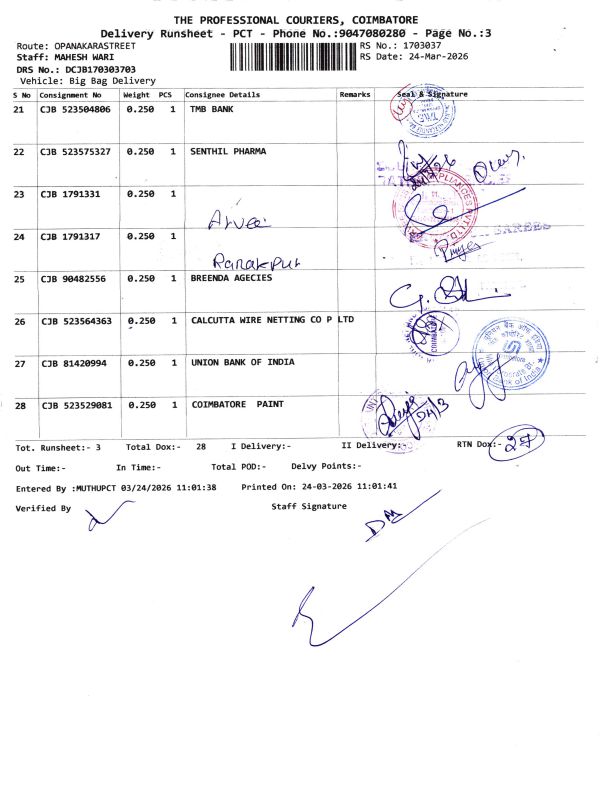 THE PROFESSIONAL COURIERS, COIMBATORE
Delivery Runsheet - PCT - Phone No.:9047080280 - Page No.:3
Route: OPANAKARASTREET RS No.: 1703037
Staff: MAHESH WARI RS Date: 24-Mar-2026
DRS No.: DCJB170303703
Vehicle: Big Bag Delivery
S No Consignment No Weight PCS Consignee Details Remarks Seal & Signature
21 CJB 523504806 0.250 1 TMB BANK
22 CJB 523575327 0.250 1 SENTHIL PHARMA
23 CJB 1791331 0.250 1
24 CJB 1791317 0.250 1
Ranakpur
25 CJB 90482556 0.250 1 BREENDA AGECIES
26 CJB 523564363 0.250 1 CALCUTTA WIRE NETTING CO P LTD
27 CJB 81420994 0.250 1 UNION BANK OF INDIA
28 CJB 523529081 0.250 1 COIMBATORE PAINT
24/3
Tot. Runsheet:- 3 Total Dox:- 28 I Delivery:- II Delivery:- RTN Dox:- 27
Out Time:- In Time:- Total POD:- Delvy Points:-
Entered By :MUTHUPCT 03/24/2026 11:01:38 Printed On: 24-03-2026 11:01:41
Verified By Staff Signature